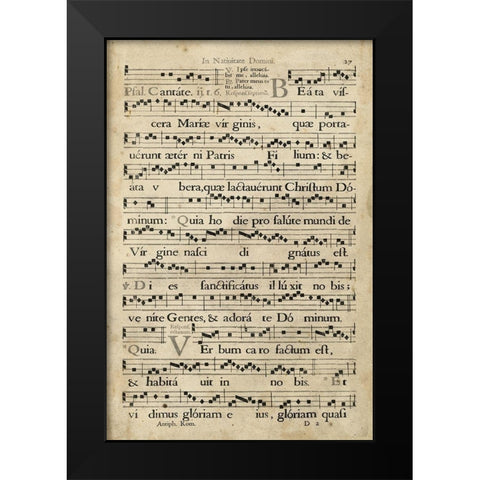 In Nativitate Domini. 27
V. Ipse invocá-
bit me, alleluia.
R. Pater meus es
tu, alleluia.
Psal. Cantáte. ij. t. 6. Respons. septimũ. B Eá ta vís-
cera Mariæ vír ginis, quæ porta-
uérunt ætér ni Patris Fi lium: & be-
áta v bera, quæ lactauérunt Christum Dó-
minum: * Quia ho die pro salúte mundi de
Vír gine nasci di gnátus est.
V. Di es sanctificátus il lúxit no bis;
ve níte Gentes, & adorá te Dó minum.
Respons.
octauum.
Quia. V Er bum ca ro factum est,
& habitá uit in no bis. * Et
vi dimus glóriam e ius, glóriam quasi
Antiph. Rom. D 2